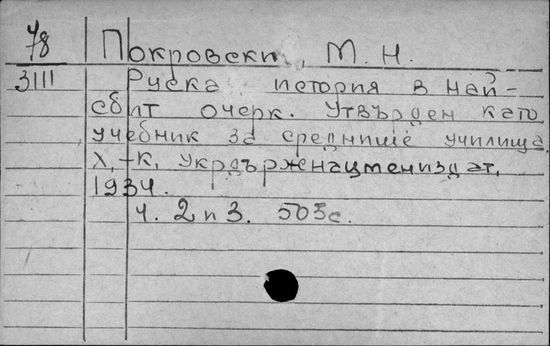 78 Покровски, М. Н.
3111 Руска история в най-
сбит очерк. Утвърден като
учебник за средните училища.
Х.,-К., Укрдържнацмениздат,
1934.
ч. 2 и 3. 503 с.